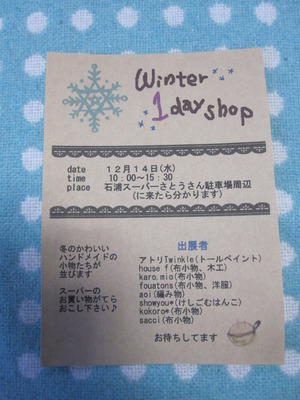 Winter
1 day shop
date １２月１４日(水)
time 10：00～15：30
place 石浦スーパーさとうさん駐車場周辺
(に来たら分かります)
冬のかわいい
ハンドメイドの
小物たちが
並びます
スーパーの
お買い物がてら
おこし下さい♪
出展者
アトリTwinkle(トールペイント)
house f(布小物、木工)
karo.mio(布小物)
fouatons(布小物、洋服)
aoi(編み物)
showyou*(けしごむはんこ)
kokoro*(布小物)
sacci(布小物)
お待ちしてます